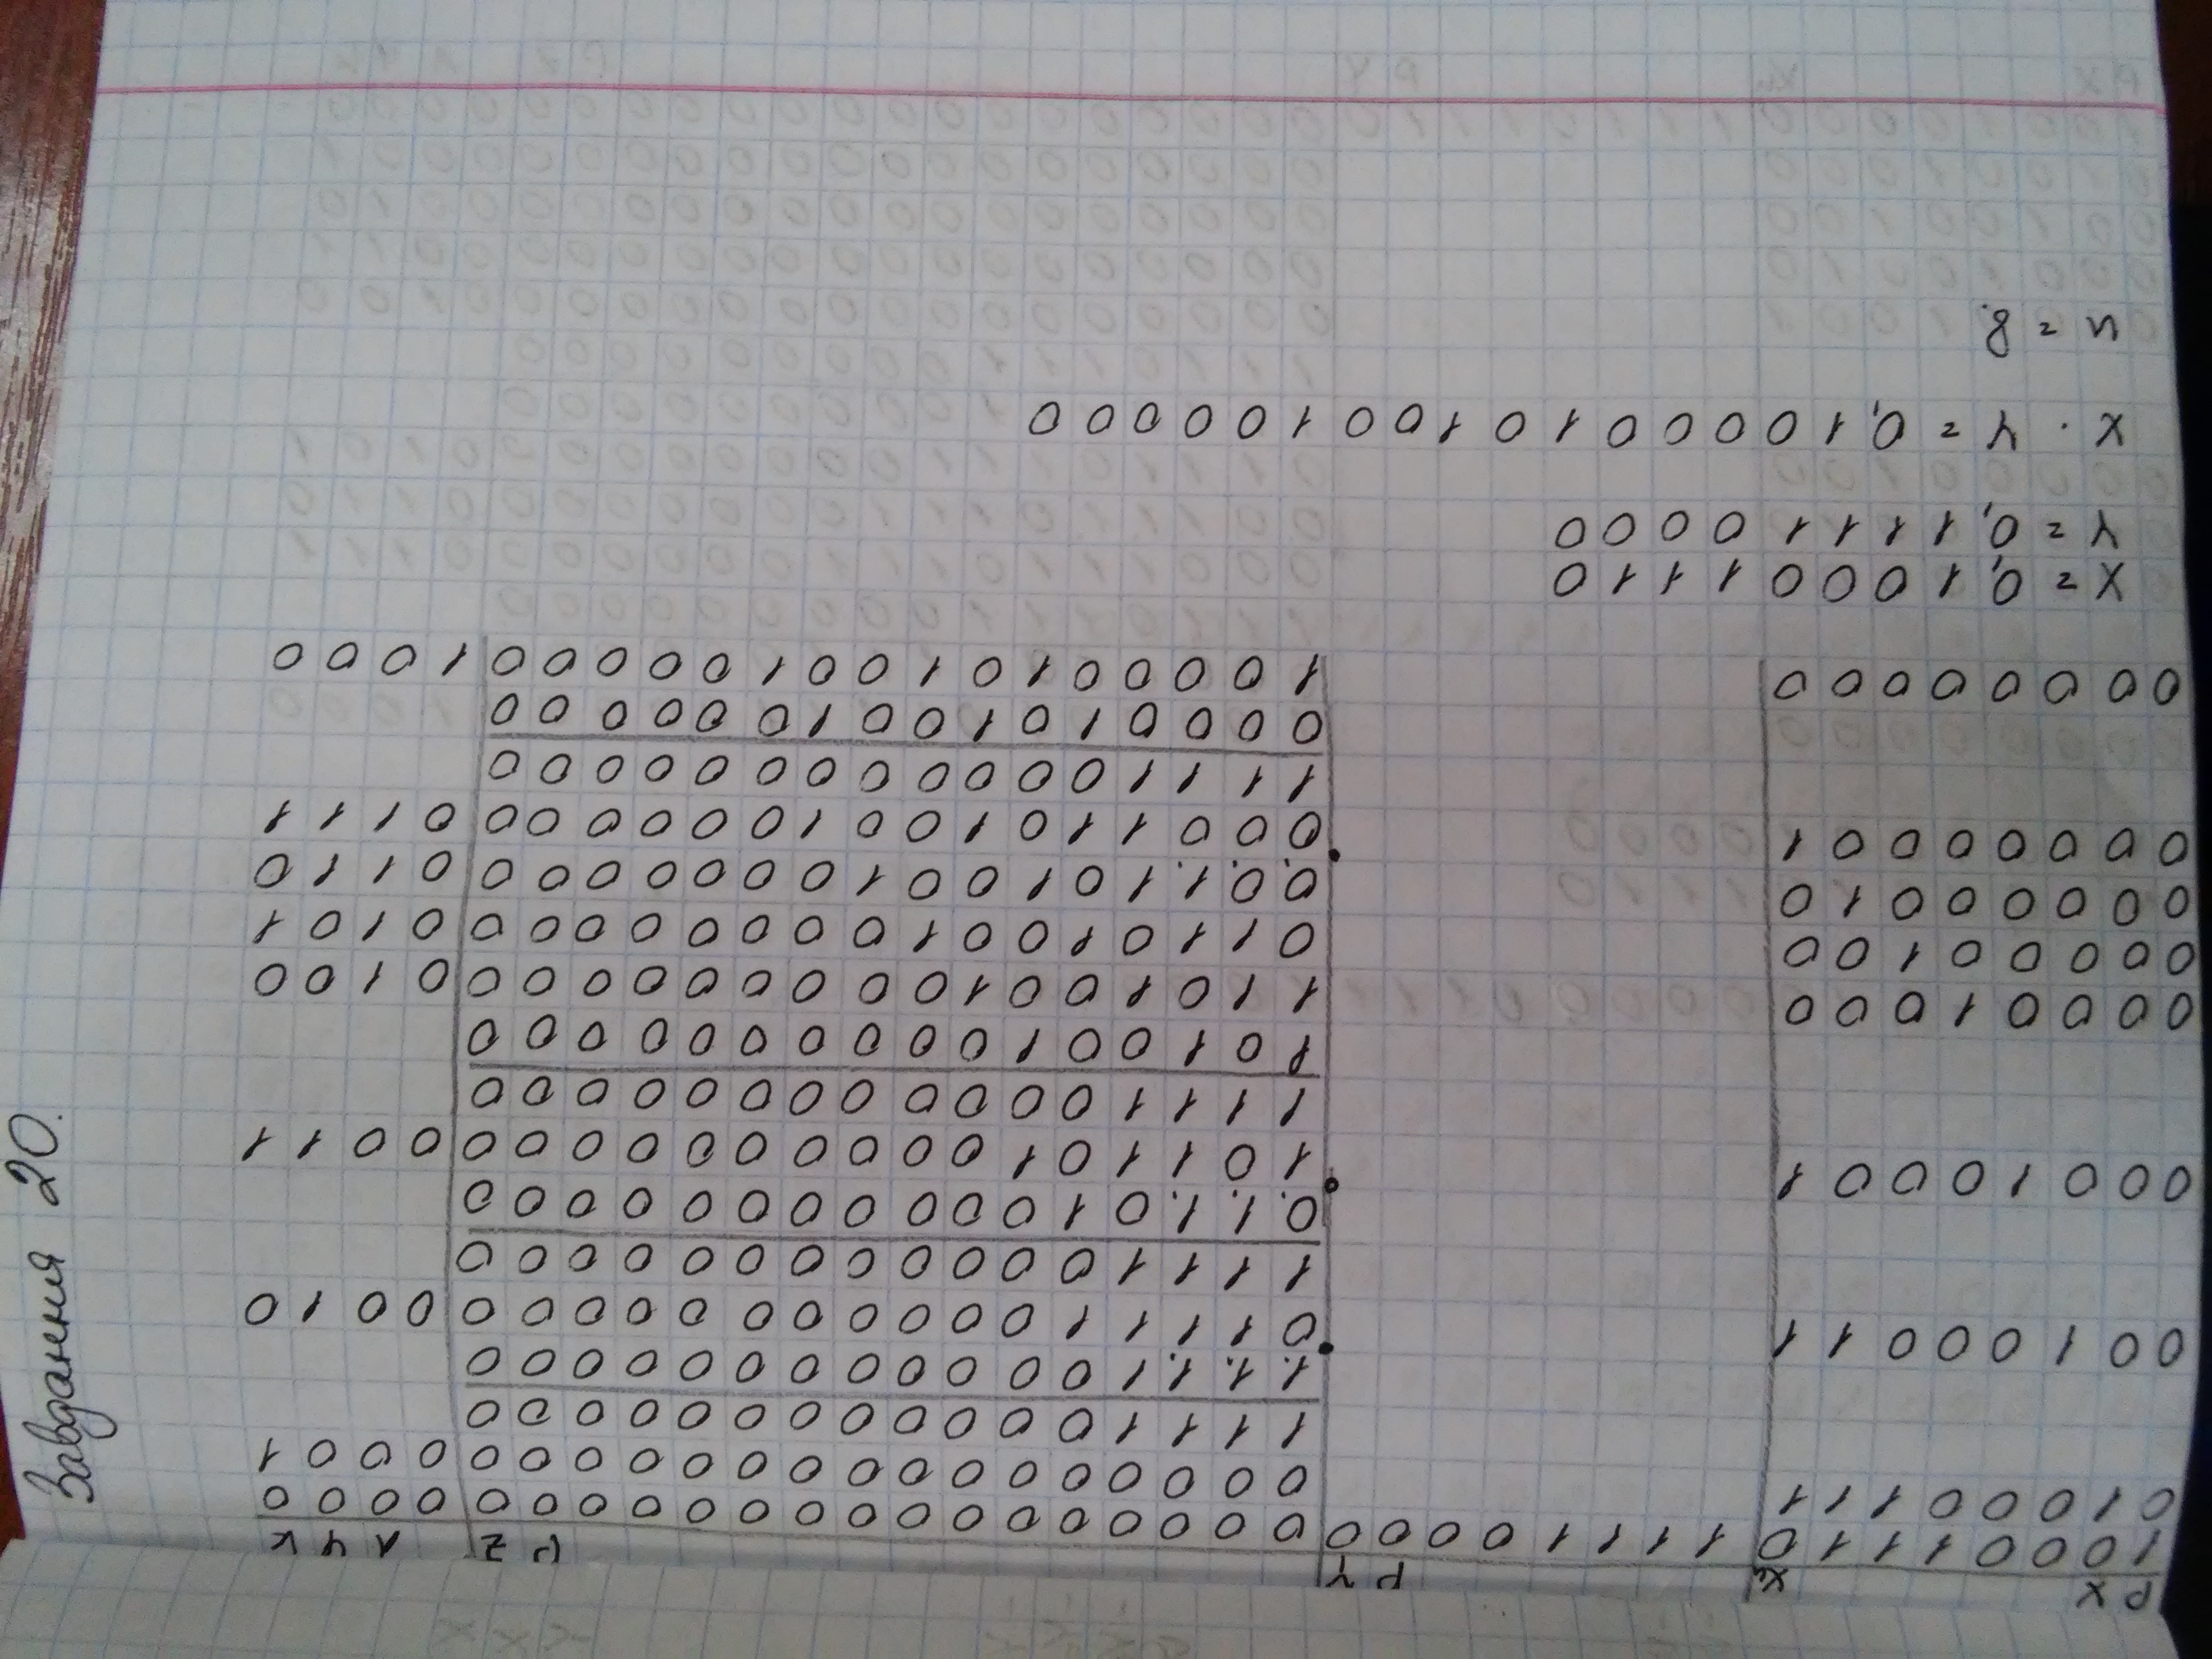 РХ Xn РY РZ ЛЧК
10001110 11110000 0000000000000000 0000
01000111 0000000000000000 0001
1111000000000000
1.1.1.1000000000000
00100011 0111100000000000 0010
1111000000000000
0.1.1.0100000000000
00010001 1011010000000000 0011
1111000000000000
1010010000000000
00001000 1101001000000000 0100
00000100 0110100100000000 0101
00000010 0.0.1.1010010000000 0110
00000001 0001101001000000 0111
1111000000000000
0000101001000000
00000000 1000010100100000 1000
X = 0,10001110
Y = 0,11110000
X · Y = 0,1000010100100000
n = 8.
Завдання 20.